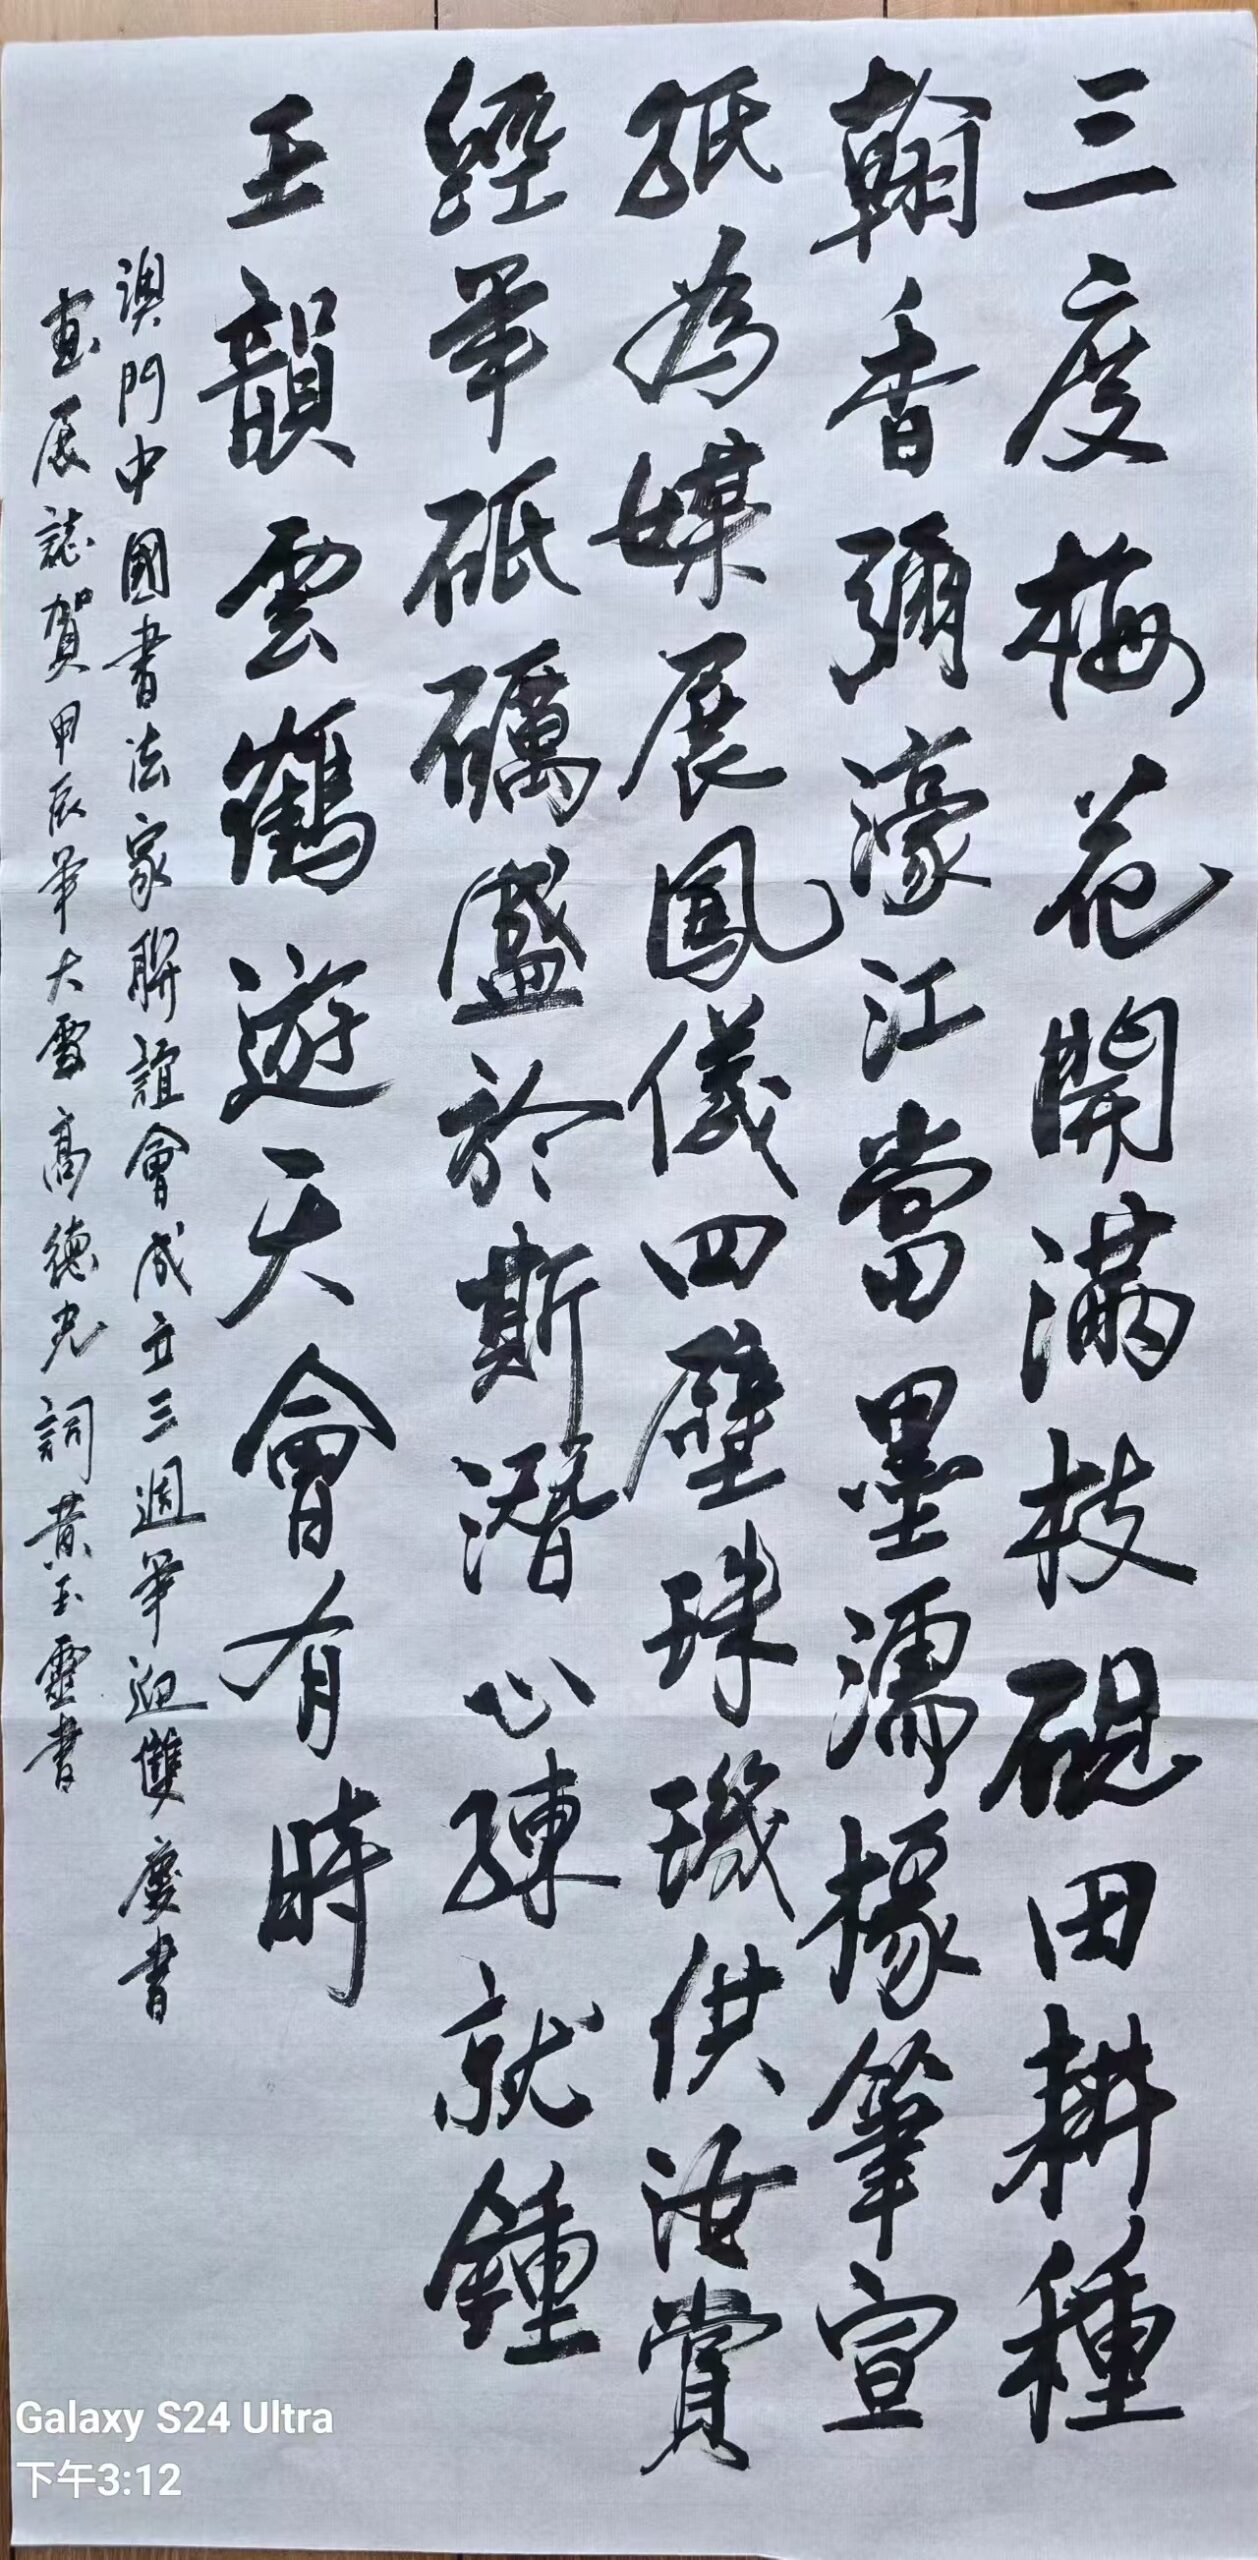 三度梅花開滿枝硯田耕種
翰香彌濠江當墨濡椽筆宣
紙為媒展鳳儀四壁珠璣供汝賞
經年砥礪盛於斯潛心練就鍾
王韻雲鶴遊天會有時
澳門中國書法家聯誼會成立三週年迎雙慶書
畫展誌賀甲辰年大雪高德光詞黃玉靈書
Galaxy S24 Ultra
下午3:12